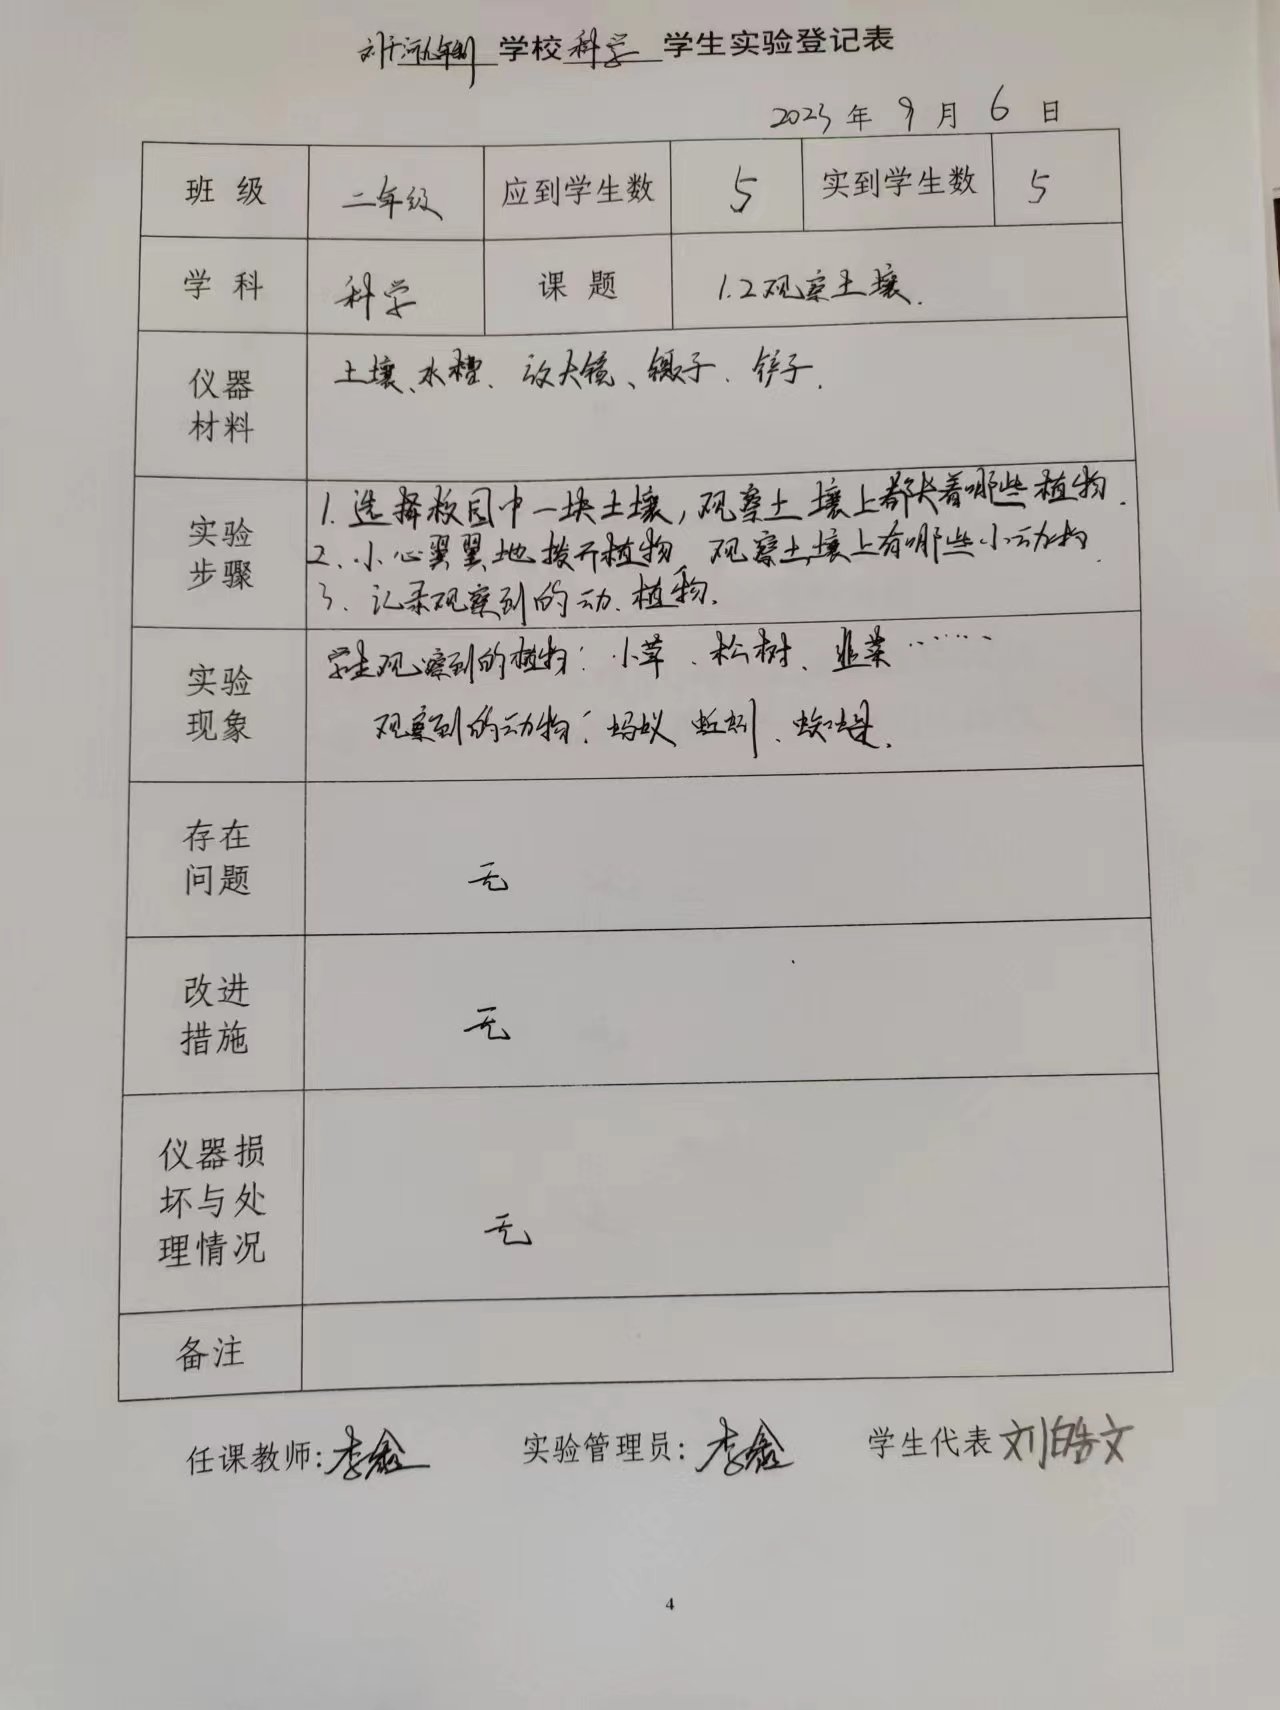 刘河九年制学校科学 学生实验登记表
2023年9月6日
班级 二年级 应到学生数 5 实到学生数 5
学科 科学 课题 1.2观察土壤.
仪器 土壤、水槽、放大镜、镊子、铲子.
材料
1.选择校园中一块土壤,观察土壤上都长着哪些植物.
实验 2、小心翼翼地拨开植物,观察土壤上有哪些小动物.
步骤 3、记录观察到的动、植物.
实验 学生观察到的植物:小草、松树、韭菜……
现象 观察到的动物:蚂蚁、蚯蚓、蜘蛛.
存在
问题 无
改进
措施 无
仪器损
坏与处 无
理情况
备注
任课教师:李鑫 实验管理员:李鑫 学生代表 刘皓文
4